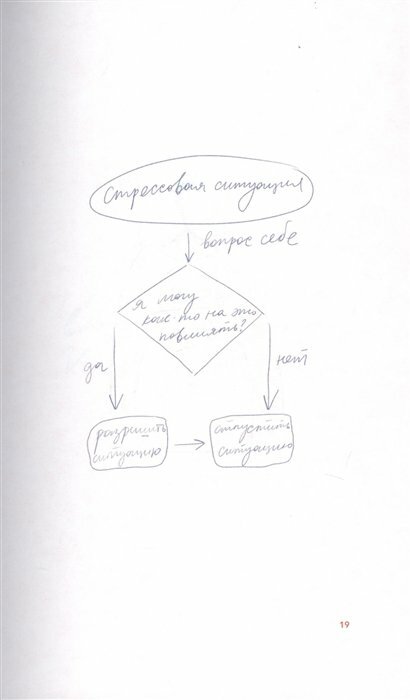 стрессовая ситуация
вопрос себе
я могу
как-то на это
повлиять?
да
нет
разрешить
ситуацию
отпустить
ситуацию
19